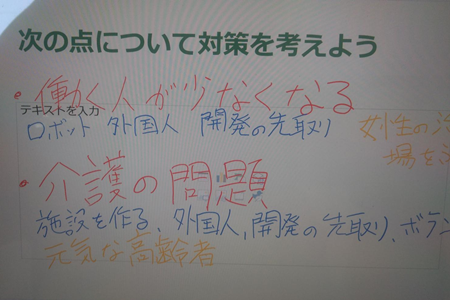 次の点について対策を考えよう
・働く人が少なくなる
テキストを入力
ロボット 外国人 開発の先取り 女性の活
場を
・介護の問題
施設を作る、外国人、開発の先取り、ボラン
元気な高齢者